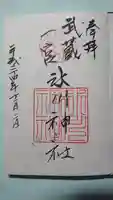 奉拝
武蔵
一宮
氷川神社
平成二四年十一月二日